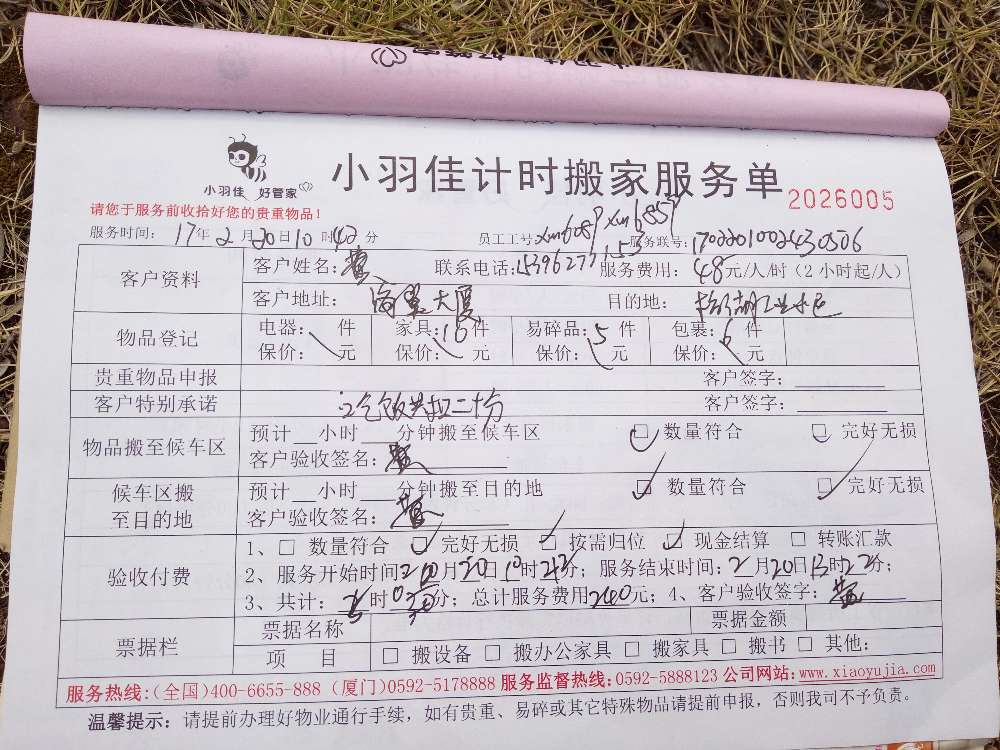 小羽佳 好管家
小羽佳计时搬家服务单
2026005
请您于服务前收拾好您的贵重物品！
服务时间：17年2月20日10时42分 员工工号: 服务联号:
客户资料 客户姓名: 联系电话: 服务费用：48元/人/时（2小时起/人）
客户地址: 海翼大厦 目的地:
物品登记 电器: 件 家具:10件 易碎品:5件 包裹:6件
保价: 元 保价: 元 保价: 元 保价: 元
贵重物品申报 客户签字:
客户特别承诺 客户签字:
物品搬至候车区 预计 小时 分钟搬至候车区 □ 数量符合 □ 完好无损
客户验收签名:
候车区搬至目的地 预计 小时 分钟搬至目的地 □ 数量符合 □ 完好无损
客户验收签名:
验收付费 1、□ 数量符合 □ 完好无损 □ 按需归位 □ 现金结算 □ 转账汇款
2、服务开始时间:2月20日10时42分；服务结束时间：2月20日13时22分；
3、共计: 时 分；总计服务费用240元；4、客户验收签字:
票据栏 票据名称 票据金额
项 目 □ 搬设备 □ 搬办公家具 □ 搬家具 □ 搬书 □ 其他:
服务热线:(全国)400-6655-888 (厦门)0592-5178888 服务监督热线:0592-5888123 公司网站:www.xiaoyujia.com
温馨提示：请提前办理好物业通行手续，如有贵重、易碎或其它特殊物品请提前申报，否则我司不予负责。